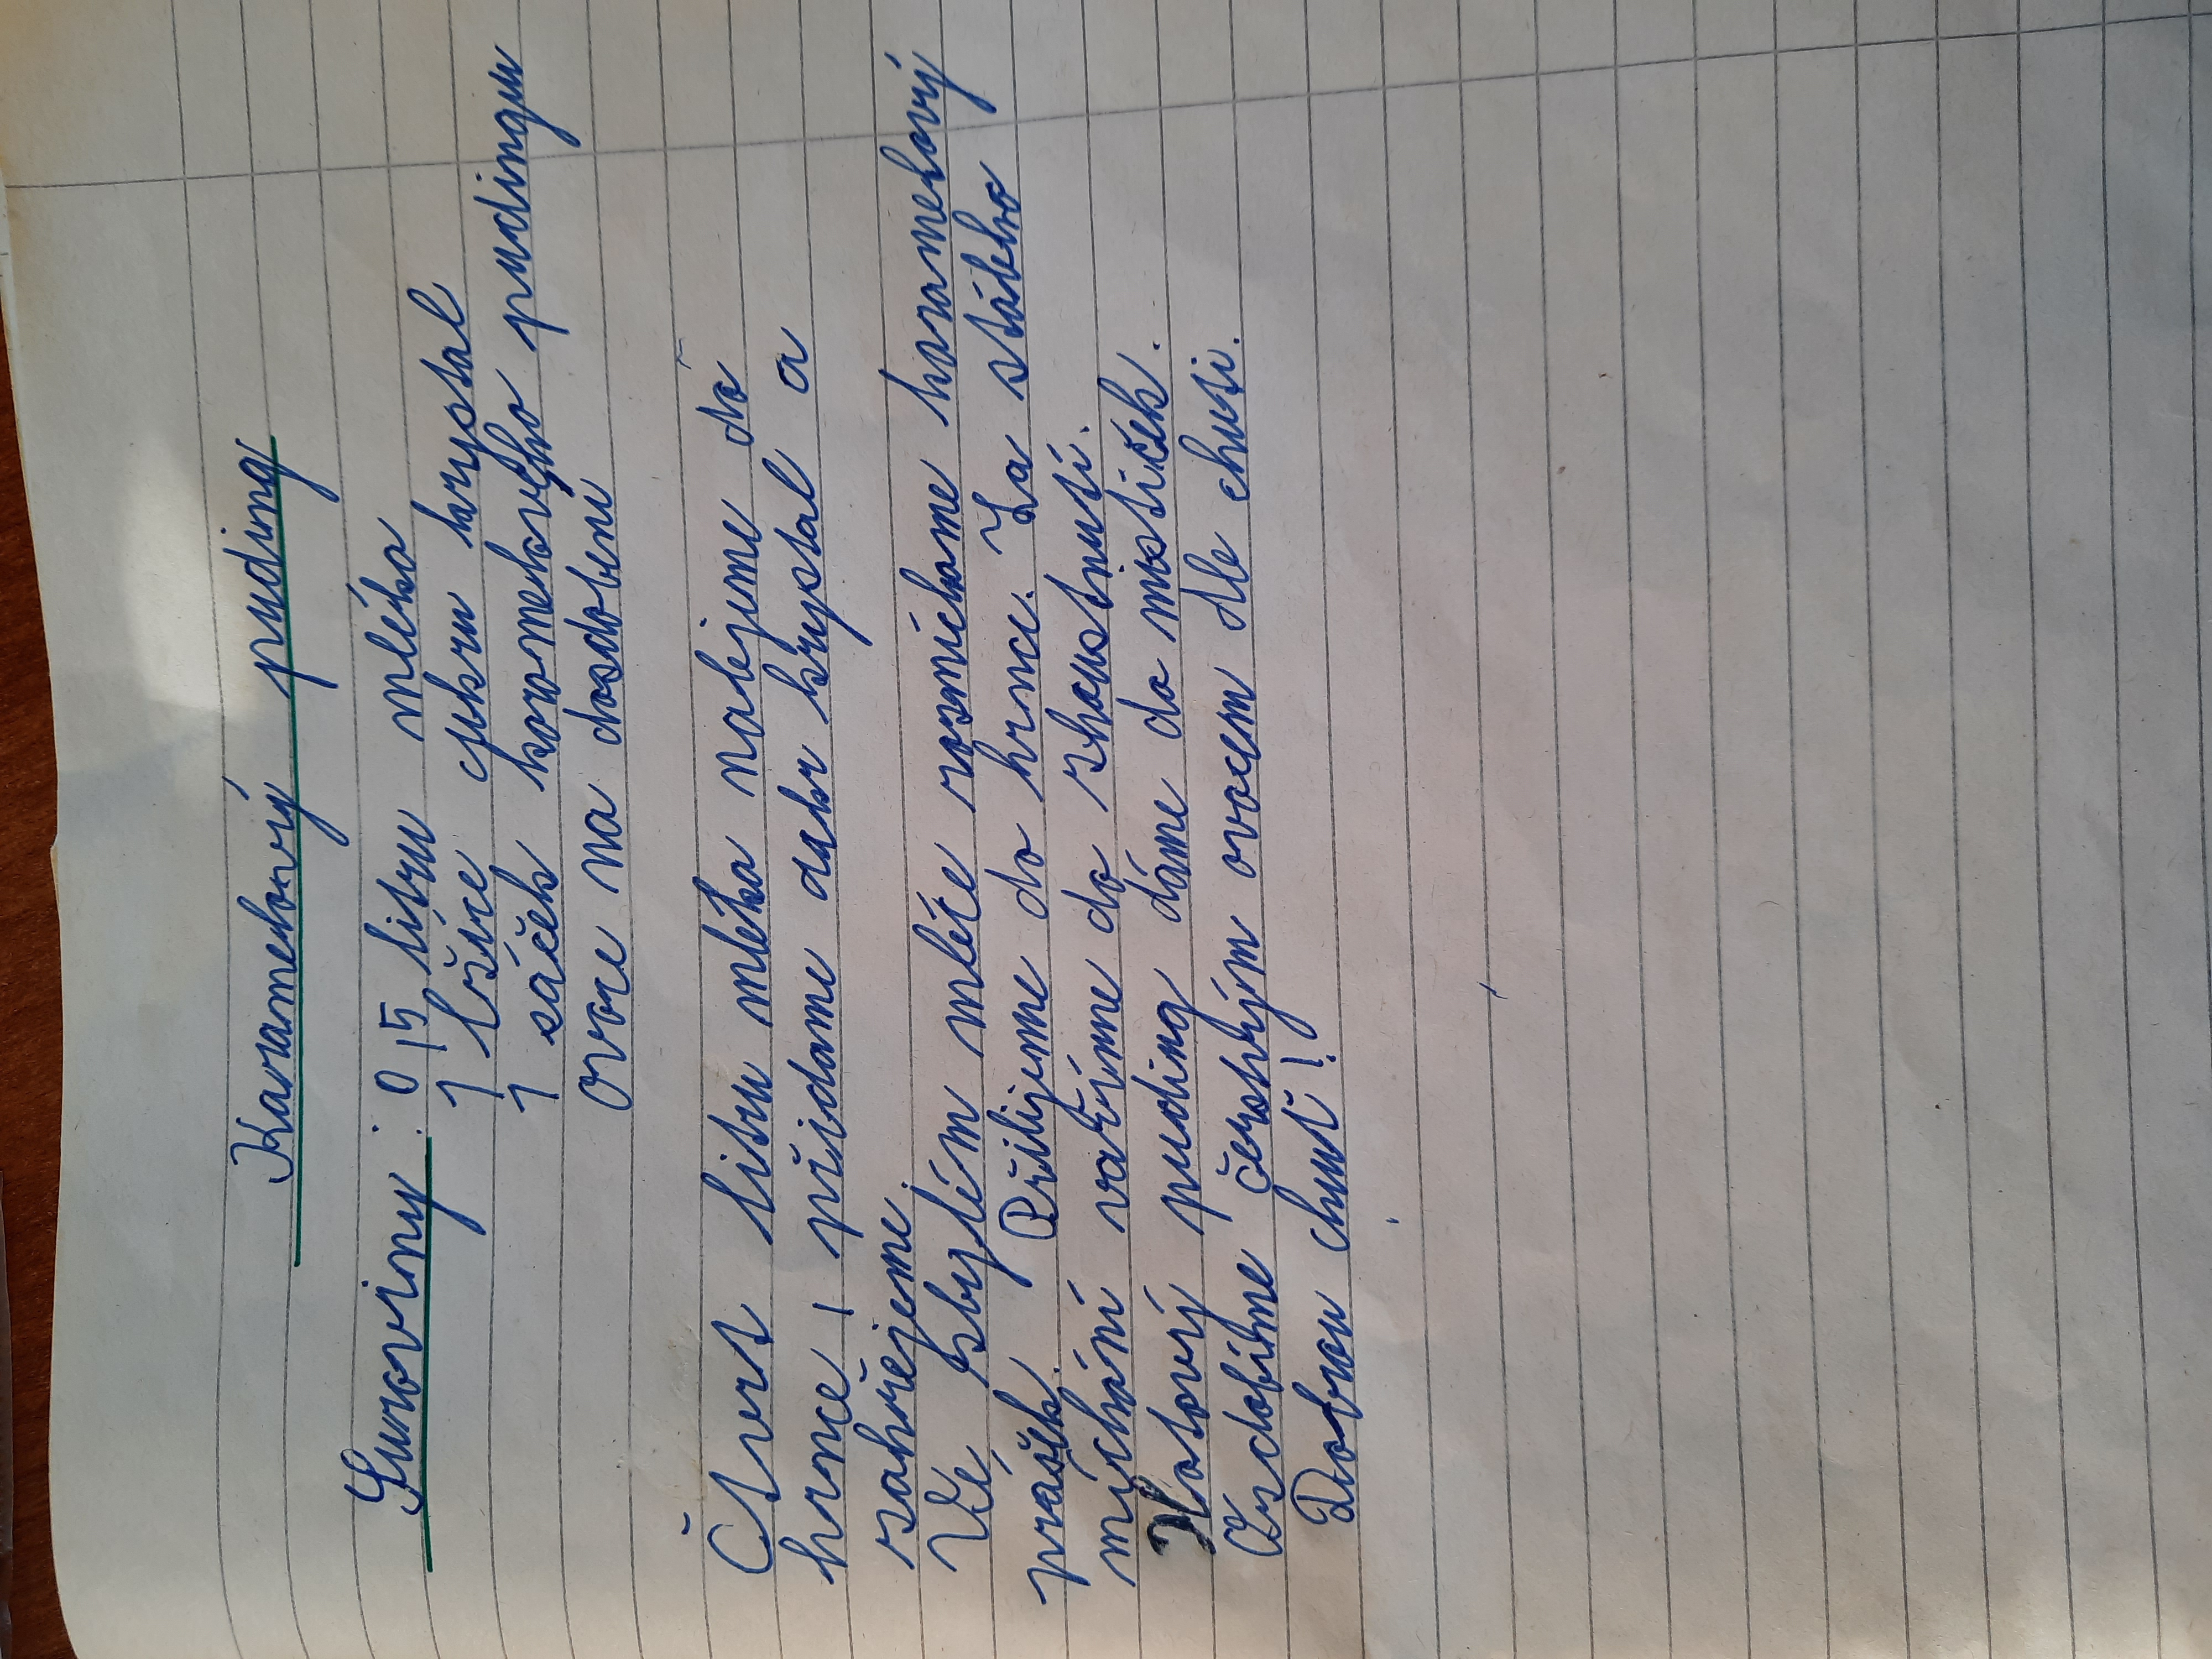 Karamelový puding
Suroviny: 0,5 litru mléka
1 lžíce cukru krystal
1 sáček karamelového pudingu
Ovoce na dozdobení
Čtvrt litru mléka nalejeme do
hrnce, přidame cukr krystal a
zahřejeme.
Ve zbylém mléce rozmícháme karamelový
prášek. Přilijeme do hrnce. Za stálého
míchání vaříme do zhoustnutí.
Hotový puding dáme do mističek.
Ozdobíme čerstvým ovocem dle chuti.
Dobrou chuť!